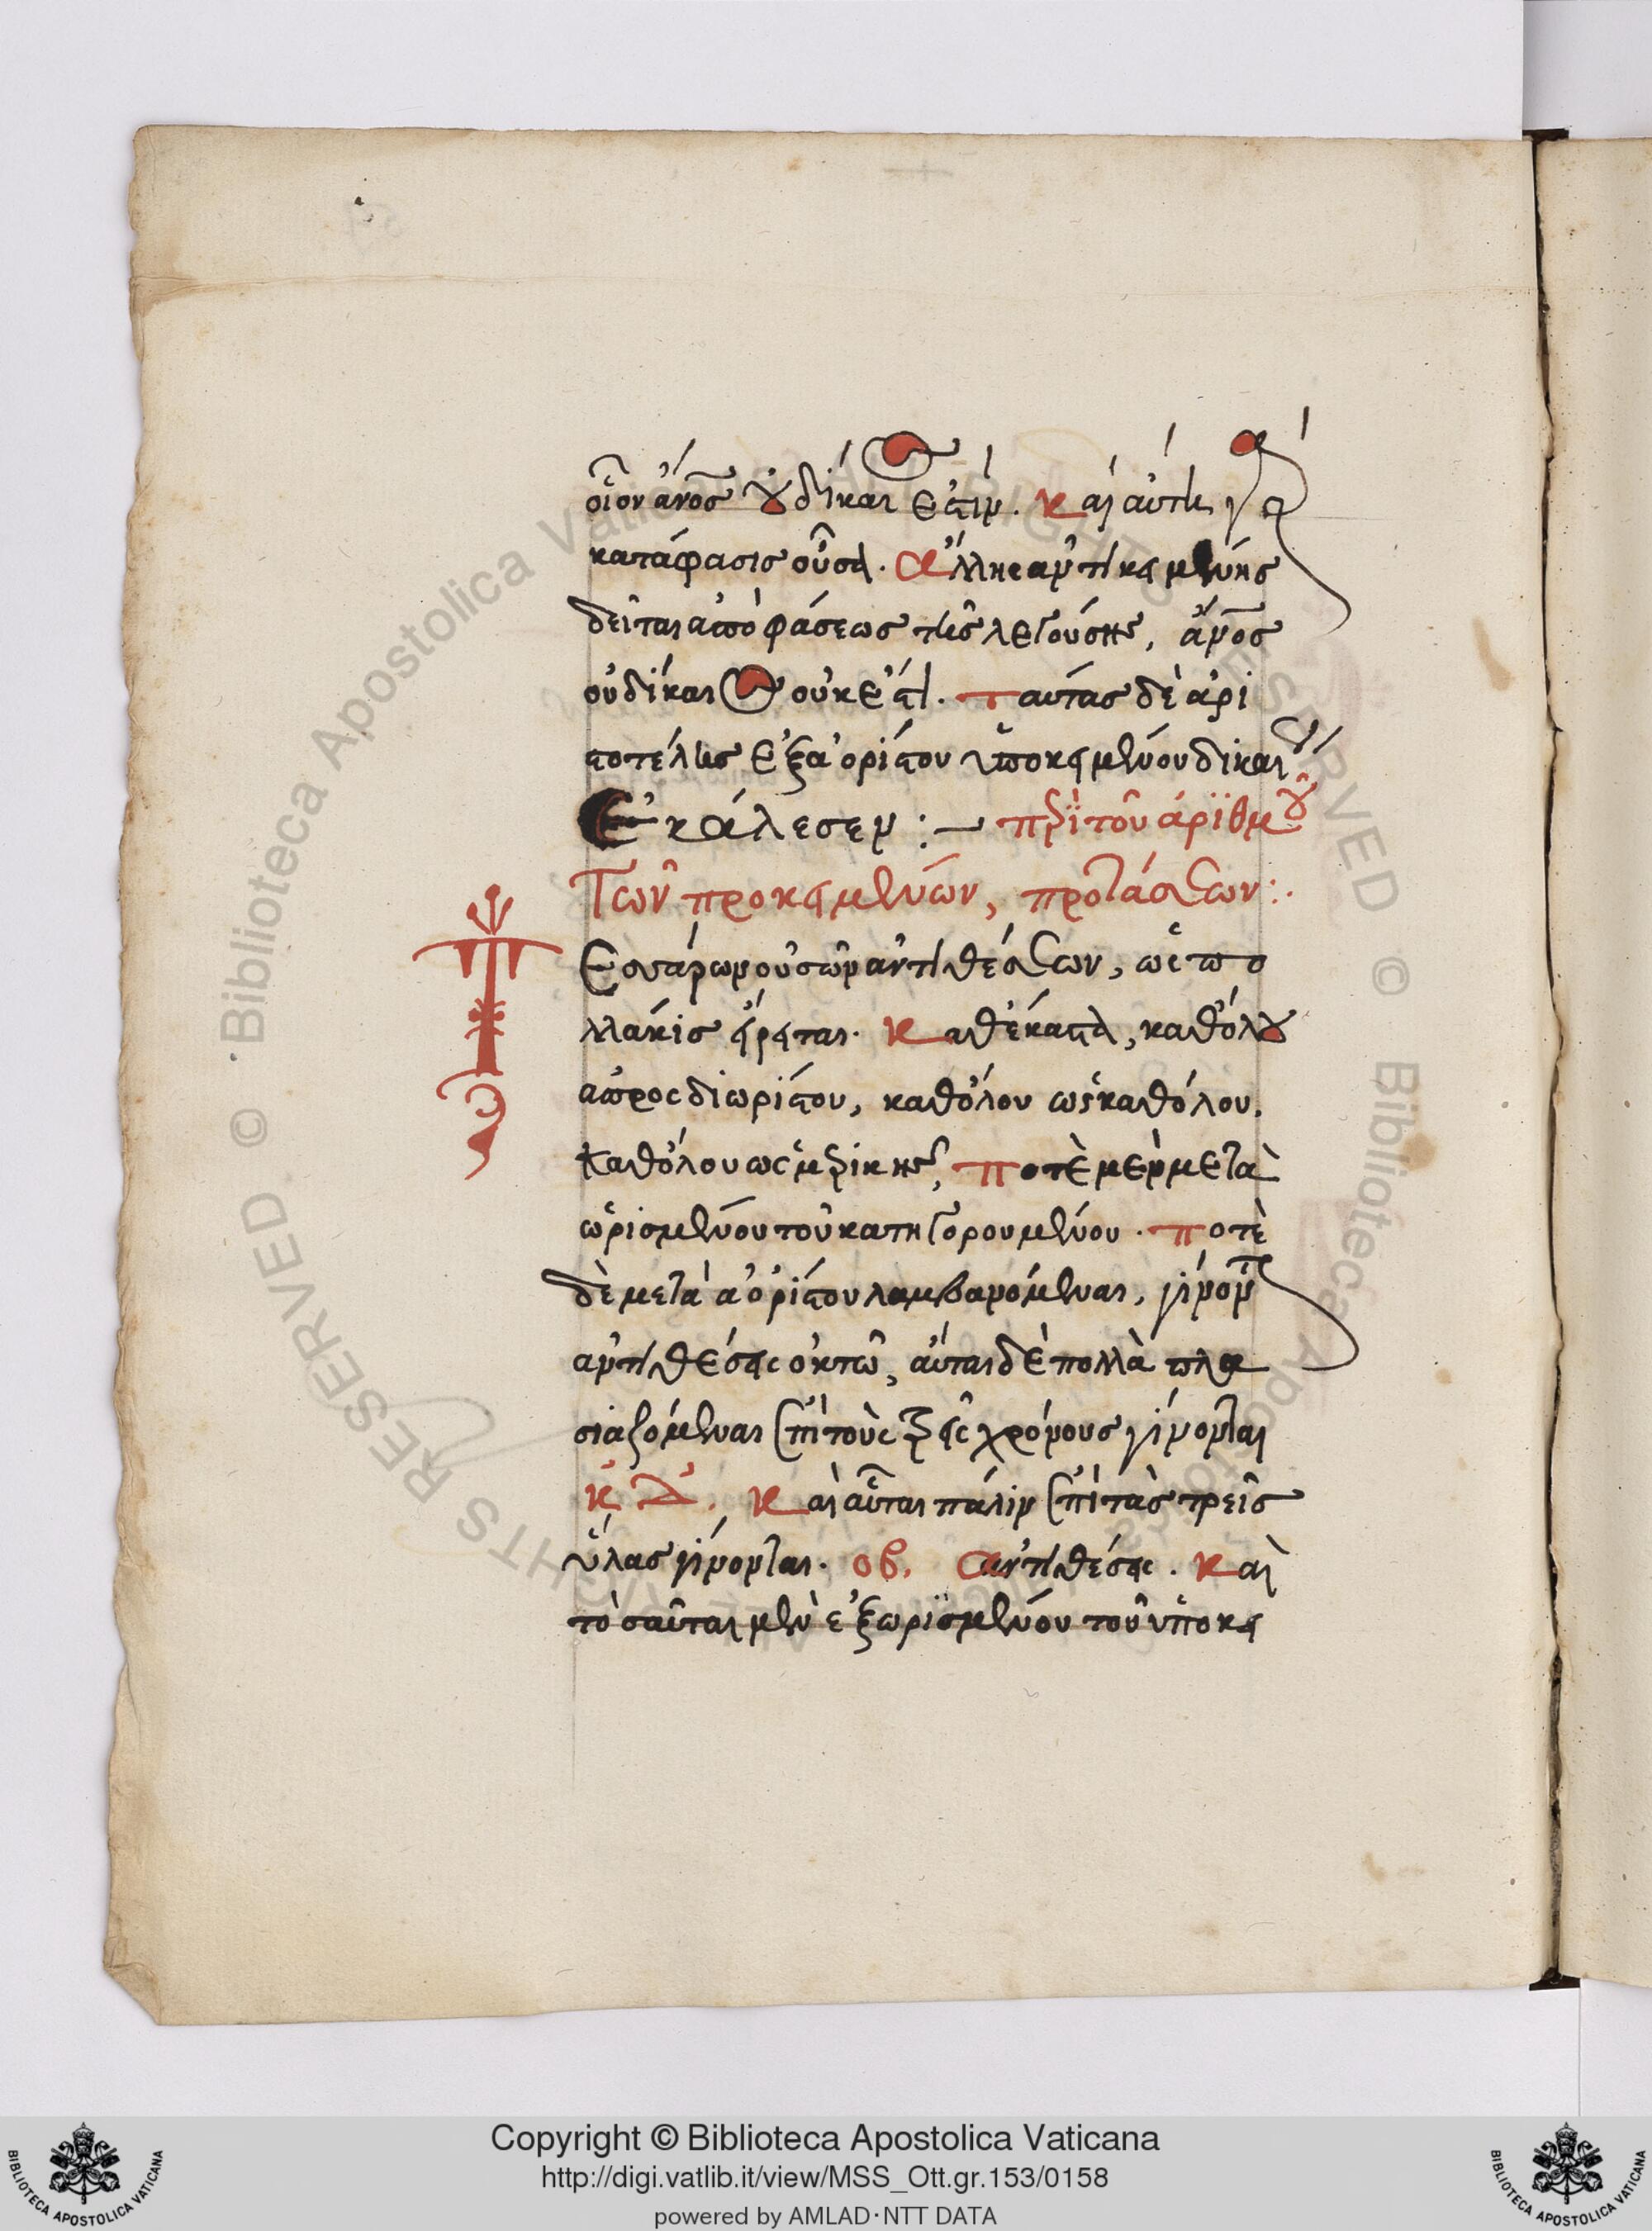 οἷον ἄνος οὐ δίκαιός ἐστιν. καὶ αὐτὴ γὰρ
κατάφασις οὖσα. ἄλλης ἀντικειμένης
δεῖται ἀποφάσεως τῆς λεγούσης, ἄνος
οὐ δίκαιος οὐκ ἔστι. ταύτας δὲ ἀρι
στοτέλης ἐξ ἀορίστου ὑποκειμένου δικαίου
ἐκάλεσεν :— περὶ τοῦ ἀριθμοῦ
τῶν προκειμένων, προτάσεων:.
Τεσσάρων οὐσῶν ἀντιθέσεων, ὡς πο
λλάκις εἴρηται. καθέκαστα, καθόλου
ἀπροσδιορίστου, καθόλου ὡς καθόλου.
καθόλου ὡς μερικῆς, ποτὲ μὲν μετὰ
ὡρισμένου τοῦ κατηγορουμένου. ποτὲ
δὲ μετὰ ἀορίστου λαμβανόμεναι, γίνονται
ἀντιθέσεις ὀκτῶ, αὗται δὲ πολλαπλα
σιαζόμεναι ἐπὶ τοὺς τρεῖς χρόνους γίνονται
κδ. καὶ αὗται πάλιν ἐπὶ τὰς τρεῖς
ὕλας γίνονται. οβ. ἀντιθέσεις. καὶ
τοσαῦται μὲν ἐξ ὡρισμένου τοῦ ὑποκει
Copyright © Biblioteca Apostolica Vaticana
http://digi.vatlib.it/view/MSS_Ott.gr.153/0158
powered by AMLAD·NTT DATA